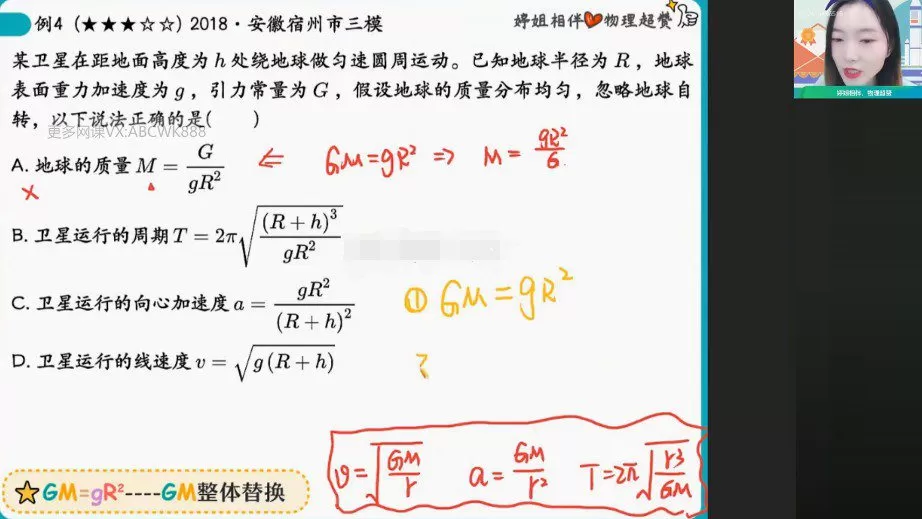 例4 (★★★☆☆) 2018·安徽宿州市三模
婷姐相伴❤物理超赞
某卫星在距地面高度为 h 处绕地球做匀速圆周运动。已知地球半径为 R，地球
表面重力加速度为 g，引力常量为 G，假设地球的质量分布均匀，忽略地球自
转，以下说法正确的是(    )
更多网课VX:ABCWK888
A. 地球的质量 M = G/gR² ⇐ GM=gR² ⇒ M = gR²/G
×
B. 卫星运行的周期 T = 2π√((R+h)³/gR²)
C. 卫星运行的向心加速度 a = gR²/(R+h)²
① GM=gR²
D. 卫星运行的线速度 v = √(g(R+h))
v=√(GM/r)  a=GM/r²  T=2π√(r³/GM)
☆GM=gR²----GM整体替换
婷姐相伴，物理超赞